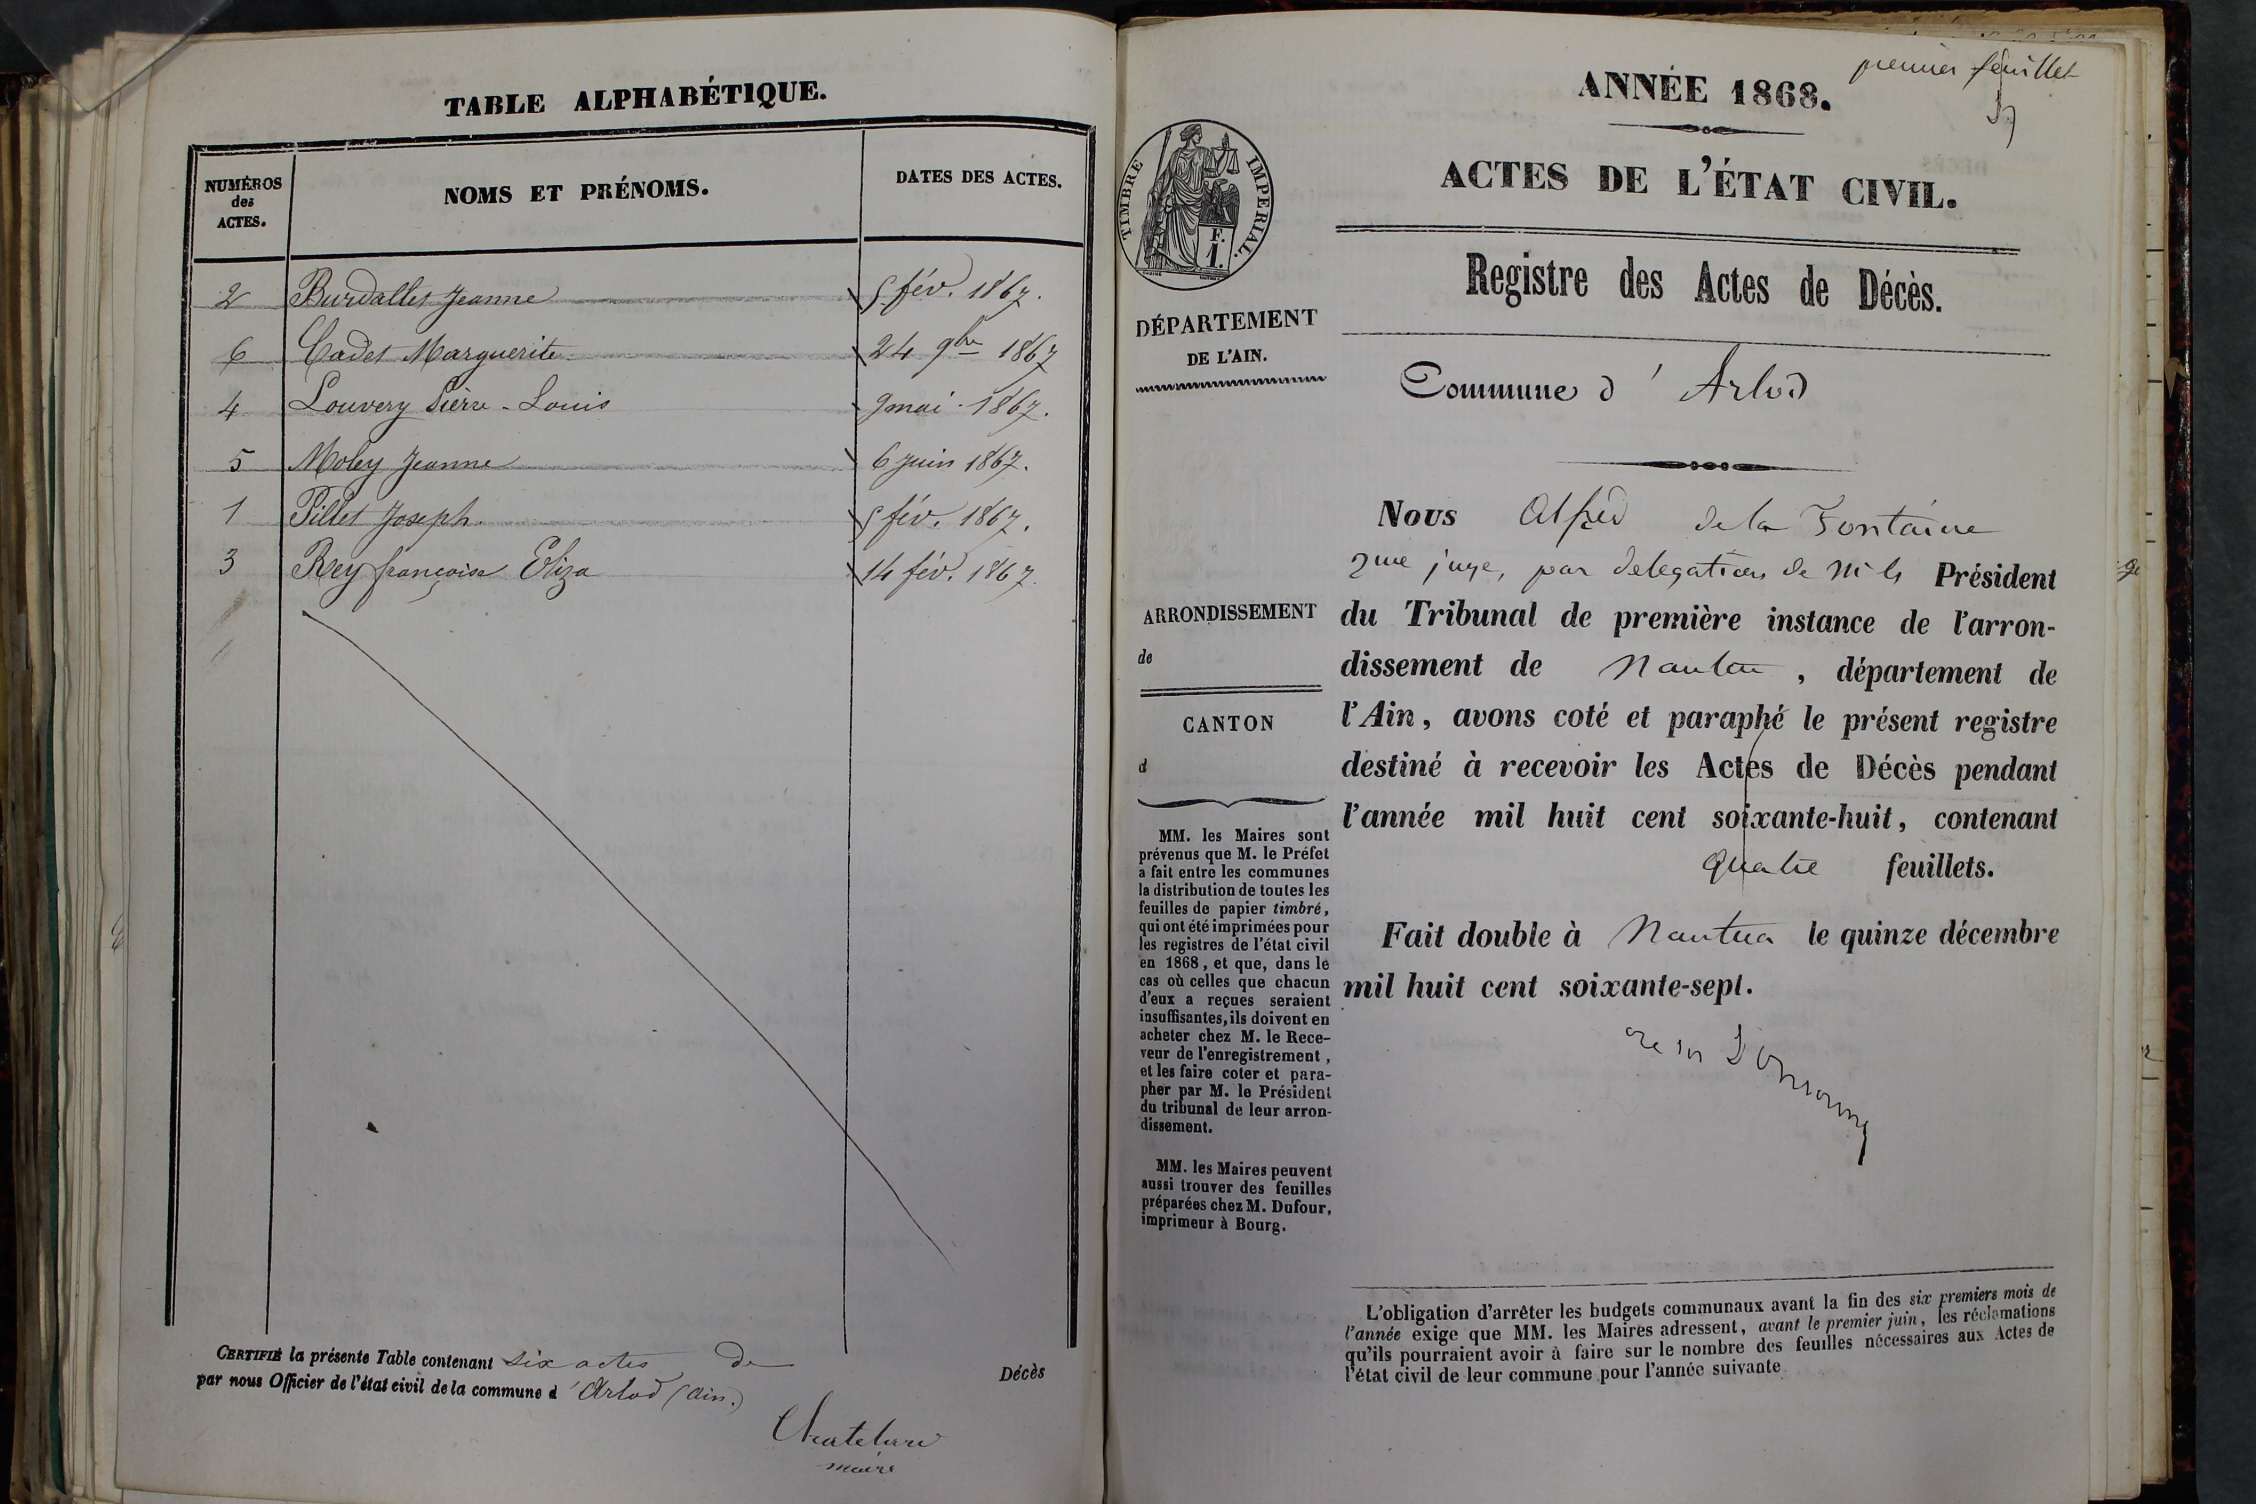 TABLE ALPHABÉTIQUE.
NUMÉROS des ACTES.
NOMS ET PRÉNOMS.
DATES DES ACTES.
2 Burdallet Jeanne 5 fév. 1867.
6 Cadet Marguerite 24 9bre 1867
4 Louvery Pierre-Louis 9 mai 1867.
5 Moley Jeanne 6 juin 1867.
1 Pillet Joseph 5 fév. 1867.
3 Rey françoise Eliza 14 fév. 1867
CERTIFIÉ la présente Table contenant six actes de Décès
par nous Officier de l'état civil de la commune d'Arlod (Ain.)
maire
premier feuillet
ANNÉE 1868.
ACTES DE L'ÉTAT CIVIL.
TIMBRE IMPERIAL.
F.
1.
Registre des Actes de Décès.
DÉPARTEMENT
DE L'AIN.
Commune d'Arlod
Nous Alfred de la Fontaine
juge, par delegation de M. le Président
du Tribunal de première instance de l'arron-
dissement de Nantua, département de
l'Ain, avons coté et paraphé le présent registre
destiné à recevoir les Actes de Décès pendant
l'année mil huit cent soixante-huit, contenant
quatre feuillets.
Fait double à Nantua le quinze décembre
mil huit cent soixante-sept.
ARRONDISSEMENT
de
CANTON
d
MM. les Maires sont
prévenus que M. le Préfet
a fait entre les communes
la distribution de toutes les
feuilles de papier timbré,
qui ont été imprimées pour
les registres de l'état civil
en 1868, et que, dans le
cas où celles que chacun
d'eux a reçues seraient
insuffisantes, ils doivent en
acheter chez M. le Rece-
veur de l'enregistrement,
et les faire coter et para-
pher par M. le Président
du tribunal de leur arron-
dissement.
MM. les Maires peuvent
aussi trouver des feuilles
préparées chez M. Dufour,
imprimeur à Bourg.
L'obligation d'arrêter les budgets communaux avant la fin des six premiers mois de
l'année exige que MM. les Maires adressent, avant le premier juin, les réclamations
qu'ils pourraient avoir à faire sur le nombre des feuilles nécessaires aux Actes de
l'état civil de leur commune pour l'année suivante.